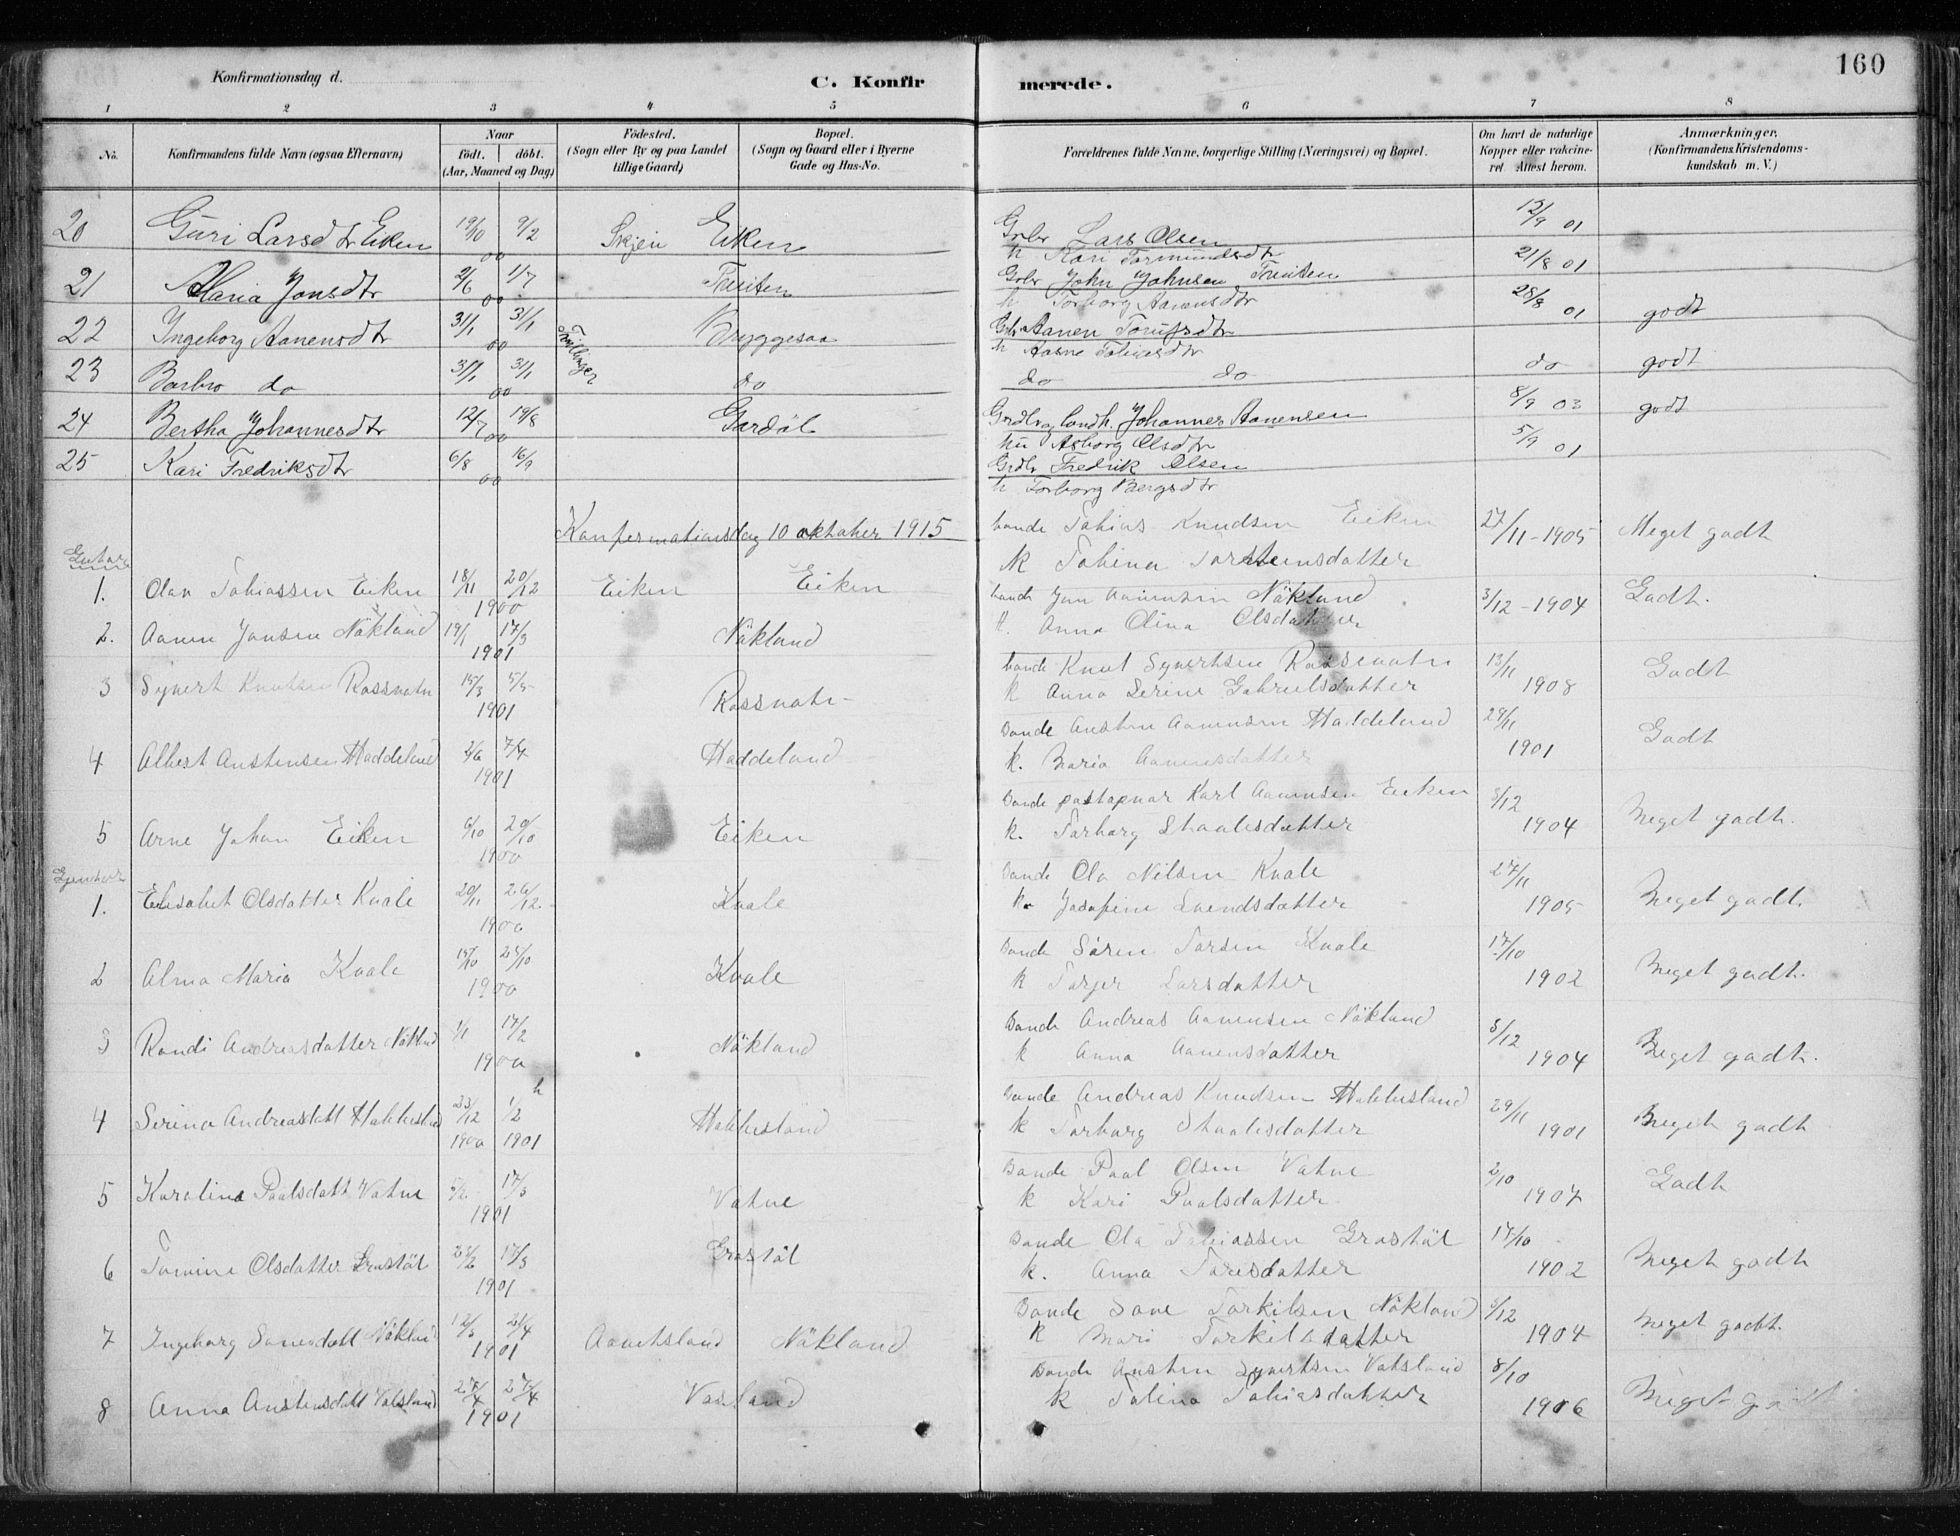 160
Konfirmationsdag d.
C. Konfirmerede.
1 2 3 4 5 6 7 8
No. Konfirmandens fulde Navn (ogsaa Efternavn) Naar født. døbt. (Aar, Maaned og Dag) Fødested. (Sogn eller By og paa Landet tillige Gaard) Bopæl. (Sogn og Gaard eller i Byerne Gade og Hus-No. Forældrenes fulde Navne, borgerlige Stilling (Næringsvei) og Bopæl. Om havt de naturlige Kopper eller vakcineret. Attest herom. Anmærkninger. (Konfirmandens Kristendomskundskab m. V.)
20 Guri Larsdtr Eiken 19/10 9/2 00 Skjein Eiken Grbr Lars Olsen 12/9 01
h Kari Tormundsdtr
21 Maria Jonsdtr 2/6 1/7 00 Grbr John Johnsen 21/8 01
h Torborg Aanensdtr
22 Ingeborg Aanensdtr 31/1 31/1 00 Tvillinger Bryggesaa Grbr Aanen 28/8 01 godt
h Aasne Tobiasdtr
23 Barbro do 31/1 31/1 00 do do do do godt
24 Bertha Johannesdtr 12/7 19/8 00 Gardöl Grdbr og landh. Johannes Aanensen 8/9 03 godt
hu Asborg Olsdtr
25 Kari Fredriksdtr 6/8 16/9 00 Grdbr Fredrik Olsen 5/9 01
h Torborg Bergsdtr
Konfermationsdag 10 oktober 1915
1. Olav Tobiassen Eiken 18/11 20/12 1900 Eiken Eiken bonde Tobias Knudsen Eiken 27/11-1905 Meget godt
k Tobina Torsteinsdatter
2. Aanen Jonsen Nökland 19/1 17/3 1901 Nökland bonde Jon Aanensen Nökland 3/12-1904 Godt.
k. Anna Olina Olsdatter
3 Syvert Knutsen Rossvatn 1901 Rossvatn bonde Knut Syvertsen Rossevatn 13/11 1908 Godt
k Anna Serine Gabrielsdatter
4 Albert Austensen Haddeland 1901 Haddeland Bonde Austen Aanensen Haddeland 29/11 1901 Godt
k. Maria Aanensdatter
5 Arne Johan Eiken 6/10 20/10 1900 Eiken Bonde Karl Aanensen Eiken 5/12 1904 Meget godt.
k. Torborg Staalesdatter
1. Elisabet Olsdatter Kvale 20/11 26/12 1900 Kvale Bonde Ola Nilsen Kvale 27/11 1905 Meget godt.
k. Josefine Svendsdatter
2 Alma Maria Kvale 1900 Kvale Bonde Sören Torsen Kvale 17/10 1902 Meget godt.
k Torjer Larsdatter
3 Randi Andreasdatter Nökland 1/1 17/2 1900 Nökland Bonde Andreas Aanensen Nökland 5/12 1904 Meget godt.
k Anna Aanensdatter
4 Serina Andreasdatt 23/12 1900 1/2 1901 Bonde Andreas Knudsen 29/11 1901 Meget godt
k Torborg Staalesdatter
5 Karolina Paalsdatt Vatne 5/2 17/3 1901 Vatne Bonde Paal Olsen Vatne 2/10 1907 Godt
k Kari Paalsdatter
6 Tomine Olsdatter Grostöl 17/3 1901 Grostöl Bonde Ola Tobiassen Grostöl 17/10 1902 Meget godt
k. Anna Toresdatter
7 Ingeborg Sonesdatt Nökland 12/3 21/4 1901 Nökland Bonde Sone Torkilsen Nökland 5/12 1904 Meget godt.
k Mari Torkilsdatter
8 Anna Austensdatt Vatsland 1901 Vatsland Bonde Austen Syvertsen Vatsland 8/10 1906 Meget godt
k Tobina Tobiasdatter